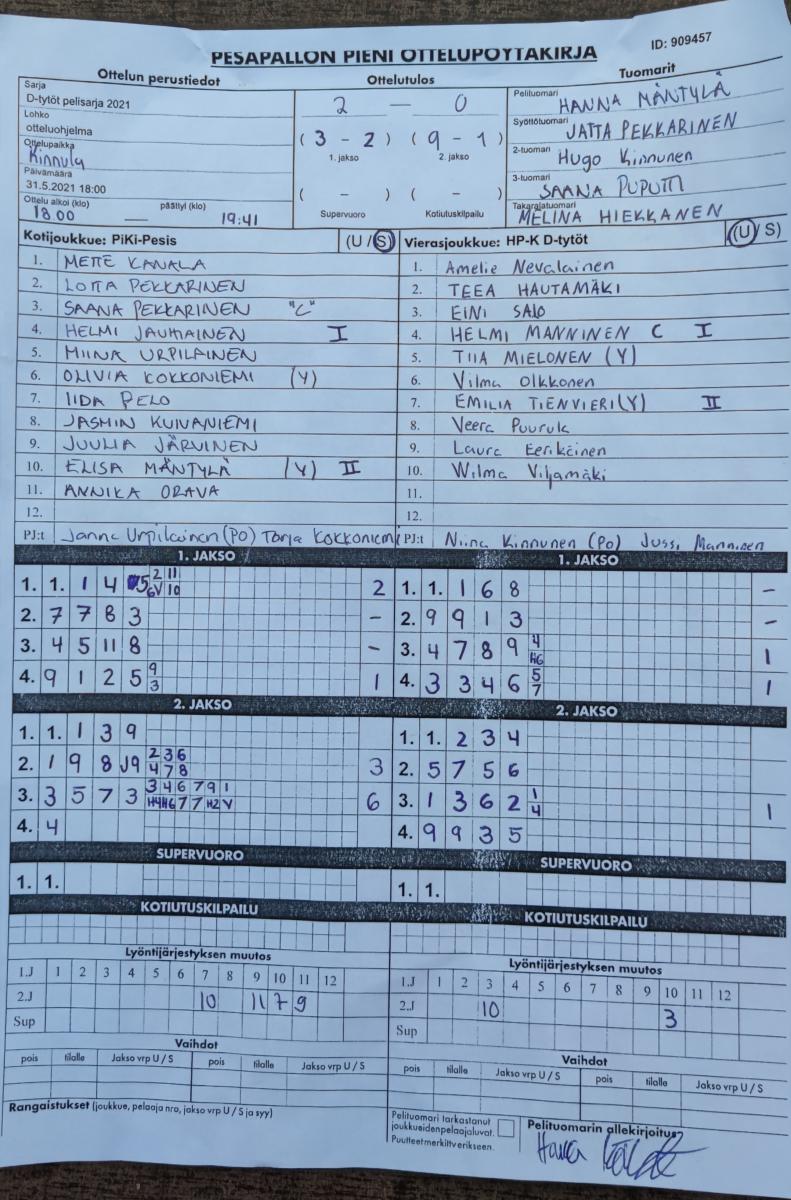 PESÄPALLON PIENI OTTELUPÖYTÄKIRJA
ID: 909457
Ottelun perustiedot
Ottelutulos
Tuomarit
Sarja
D-tytöt pelisarja 2021
Lohko
otteluohjelma
Ottelupaikka
Kinnula
Päivämäärä
31.5.2021 18:00
Ottelu alkoi (klo)
päättyi (klo)
18.00 — 19:41
2 — 0
( 3 - 2 ) ( 9 - 1 )
1. jakso 2. jakso
( - ) ( - )
Supervuoro Kotiutuskilpailu
Pelituomari HANNA MÄNTYLÄ
Syöttötuomari JATTA PEKKARINEN
2-tuomari Hugo Kinnunen
3-tuomari SAANA PUPUTTI
Takarajatuomari
MELINA HIEKKANEN
Kotijoukkue: PiKi-Pesis (U / S)
1. METTE KANALA
2. LOTTA PEKKARINEN
3. SAANA PEKKARINEN "C"
4. HELMI JAUHIAINEN I
5. MIINA URPILAINEN
6. OLIVIA KOKKONIEMI (Y)
7. IIDA PELO
8. JASMIN KUIVANIEMI
9. JUULIA JÄRVINEN
10. ELISA MÄNTYLÄ (Y) II
11. ANNIKA ORAVA
12.
PJ:t Janne Urpilainen (PO) Tarja Kokkoniemi
Vierasjoukkue: HP-K D-tytöt (U / S)
1. Amelie Nevalainen
2. TEEA HAUTAMÄKI
3. EINI SALO
4. HELMI MANNINEN C I
5. TIIA MIELONEN (Y)
6. Vilma Olkkonen
7. EMILIA TIENVIERI (Y) II
8. Veera Puurula
9. Laura Eerikäinen
10. Wilma Viljamäki
11.
12.
PJ:t Niina Kinnunen (PO) Jussi Manninen
1. JAKSO
1. 1. 1 4 5 2 11 2
6V 10
2. 7 7 8 3 -
3. 4 5 11 8 -
4. 9 1 2 5 9 1
3
2. JAKSO
1. 1. 1 3 9
2. 1 9 8 J9 2 3 6 3
4 7 8
3. 3 5 7 3 3 4 6 7 9 1 6
H4 H6 7 7 H2 V
4. 4
SUPERVUORO
1. 1.
KOTIUTUSKILPAILU
1. JAKSO
1. 1. 1 6 8 -
2. 9 9 1 3 -
3. 4 7 8 9 4 1
H6
4. 3 3 4 6 5 1
7
2. JAKSO
1. 1. 2 3 4
2. 5 7 5 6
3. 1 3 6 2 1 1
4
4. 9 9 3 5
SUPERVUORO
1. 1.
KOTIUTUSKILPAILU
Lyöntijärjestyksen muutos
1.J 1 2 3 4 5 6 7 8 9 10 11 12
2.J 10 11 7 9
Sup
Vaihdot
pois tilalle Jakso vrp U / S pois tilalle Jakso vrp U / S
Rangaistukset (joukkue, pelaaja nro, jakso vrp U / S ja syy)
Lyöntijärjestyksen muutos
1.J 1 2 3 4 5 6 7 8 9 10 11 12
2.J 10 3
Sup
Vaihdot
pois tilalle Jakso vrp U / S pois tilalle Jakso vrp U / S
Pelituomari tarkastanut
joukkueidenpelaajaluvat.
Puutteetmerkittverikseen.
Pelituomarin allekirjoitus?